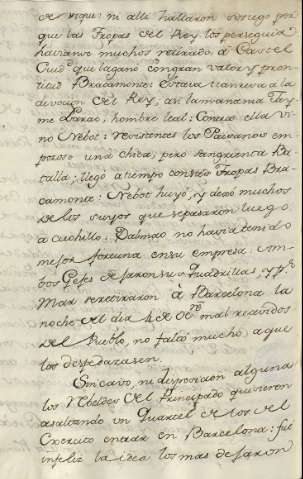 de Vique: ni alli hallaron sosiego por
que las Tropas del Rey los perseguia
havianse muchos retirado à Castel
Ciuto que la ganò con gran valor, y pron
titud Bracamonte: Estava tambien a la
devocion del Rey,
me Llanao, hombre leal: Contra ella vi
no Nebot: resistenles los Paisanos em
pezose una chica, pero sangrienta Ba
talla; llegó a tiempo con sus Tropas Bra
camonte: Nebot huyó, y dexó muchos
de los suyos que se pasaron luego
a cuchillo: Dalmao no havia tenido
mejor fortuna en su empresa: Am
bos Gefes dexaron sus Quadrillas, y p.r
Mar se retiraron à Barcelona la
noche del dia 4 de mal recividos
del Pueblo, no faltó mucho a que
los despedazasen.
En cavo, ni desposeron alguna
los Rebeldes del Principado quisieron
asaltando un Quartel de los del
Exercito entrar en Barcelona: fue
infeliz la idea los mas dexaron